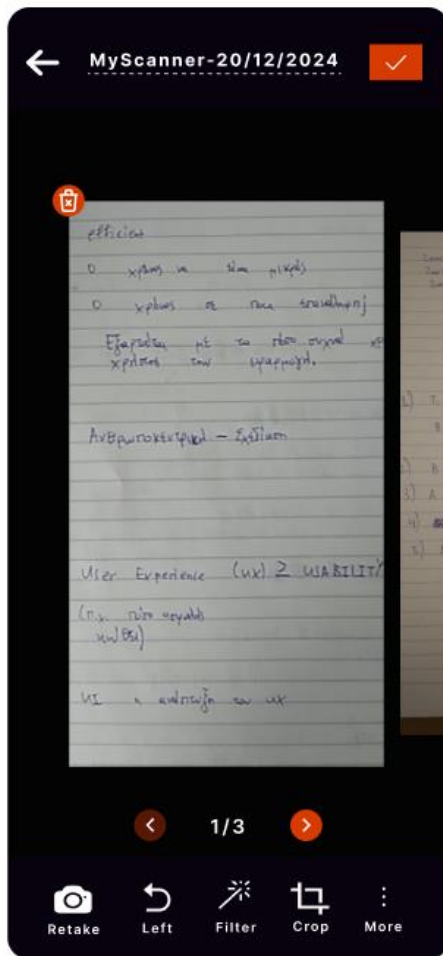 MyScanner-20/12/2024
efficient
Ο χρόνος να είναι μικρός
Ο χρόνος σε ποια επανάληψη
Εξαρτάται με το πόσο συχνά
χρήστης την εφαρμογή.
Ανθρωποκεντρική - Σχεδίαση
User Experience (UX) ≥ USABILITY
(π.χ. πόσο
UI η ανάπτυξη του UX
1/3
Retake
Left
Filter
Crop
More